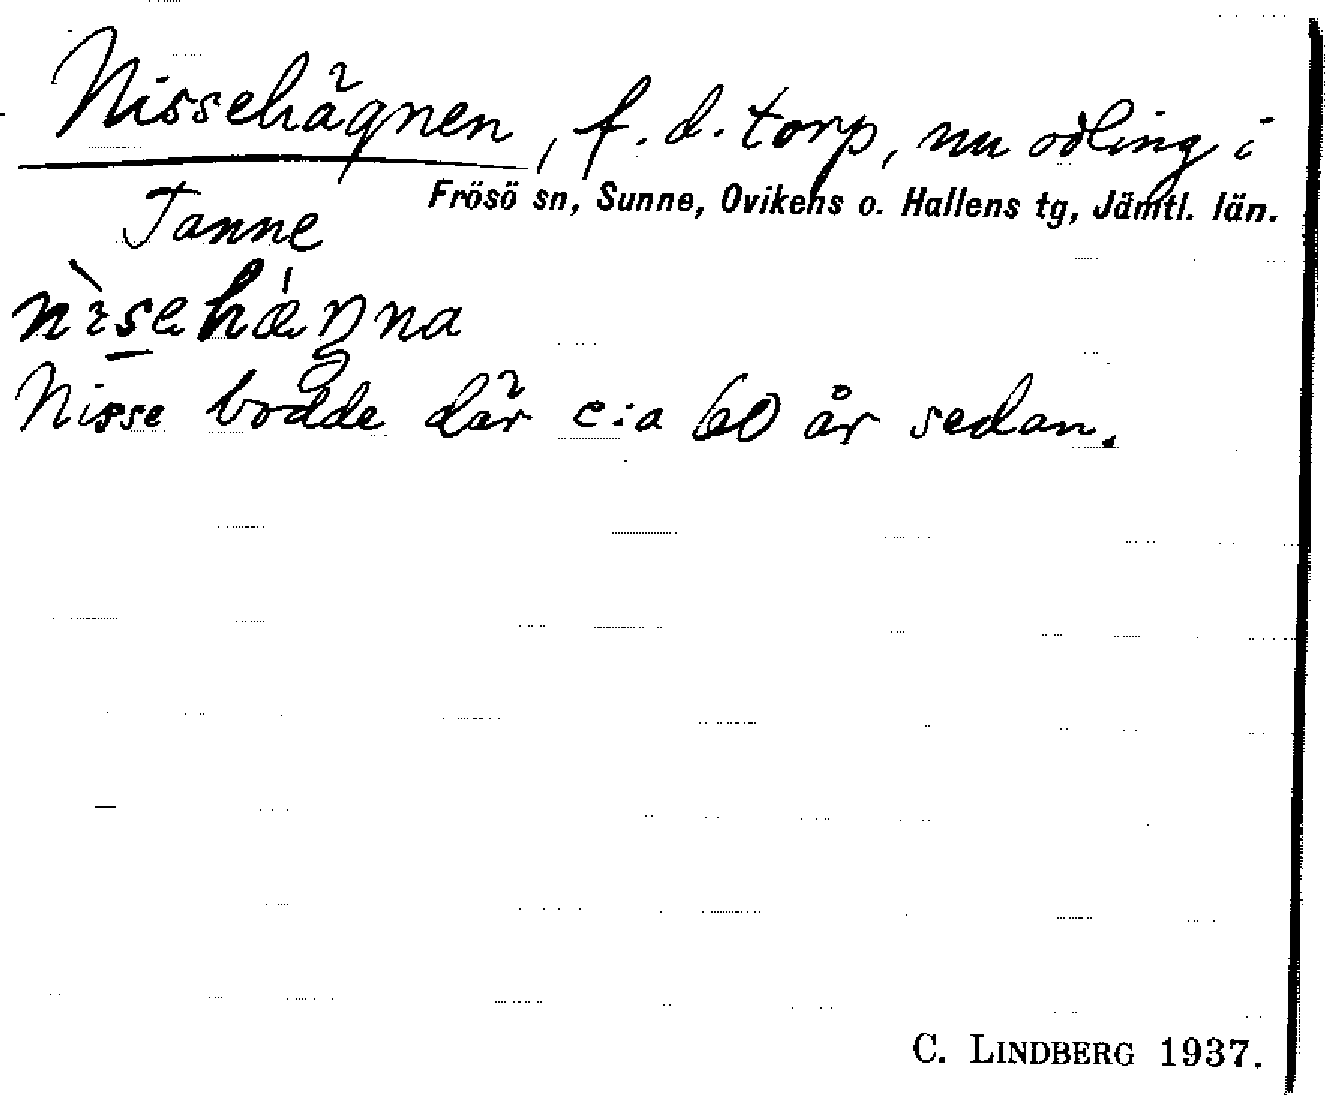 Nissehägnen, f. d. torp, nu odling i
Frösö sn, Sunne, Ovikens o. Hallens tg, Jämtl. län.
Tanne
nìsehæ̀ŋna
Nisse bodde där c:a 60 år sedan.
C. LINDBERG 1937.